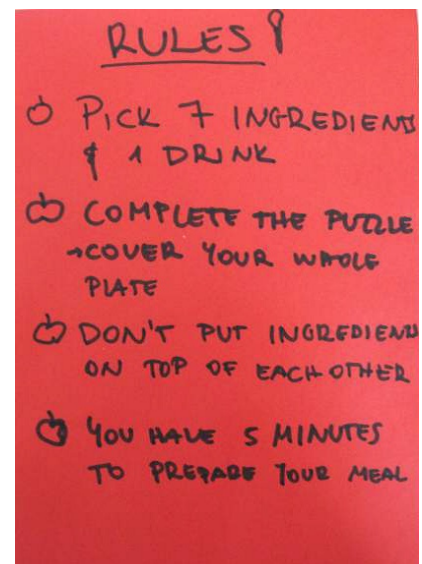 RULES!
PICK 7 INGREDIENTS
& 1 DRINK
COMPLETE THE PUZZLE
→COVER YOUR WHOLE
PLATE
DON'T PUT INGREDIENTS
ON TOP OF EACH OTHER
YOU HAVE 5 MINUTES
TO PREPARE YOUR MEAL